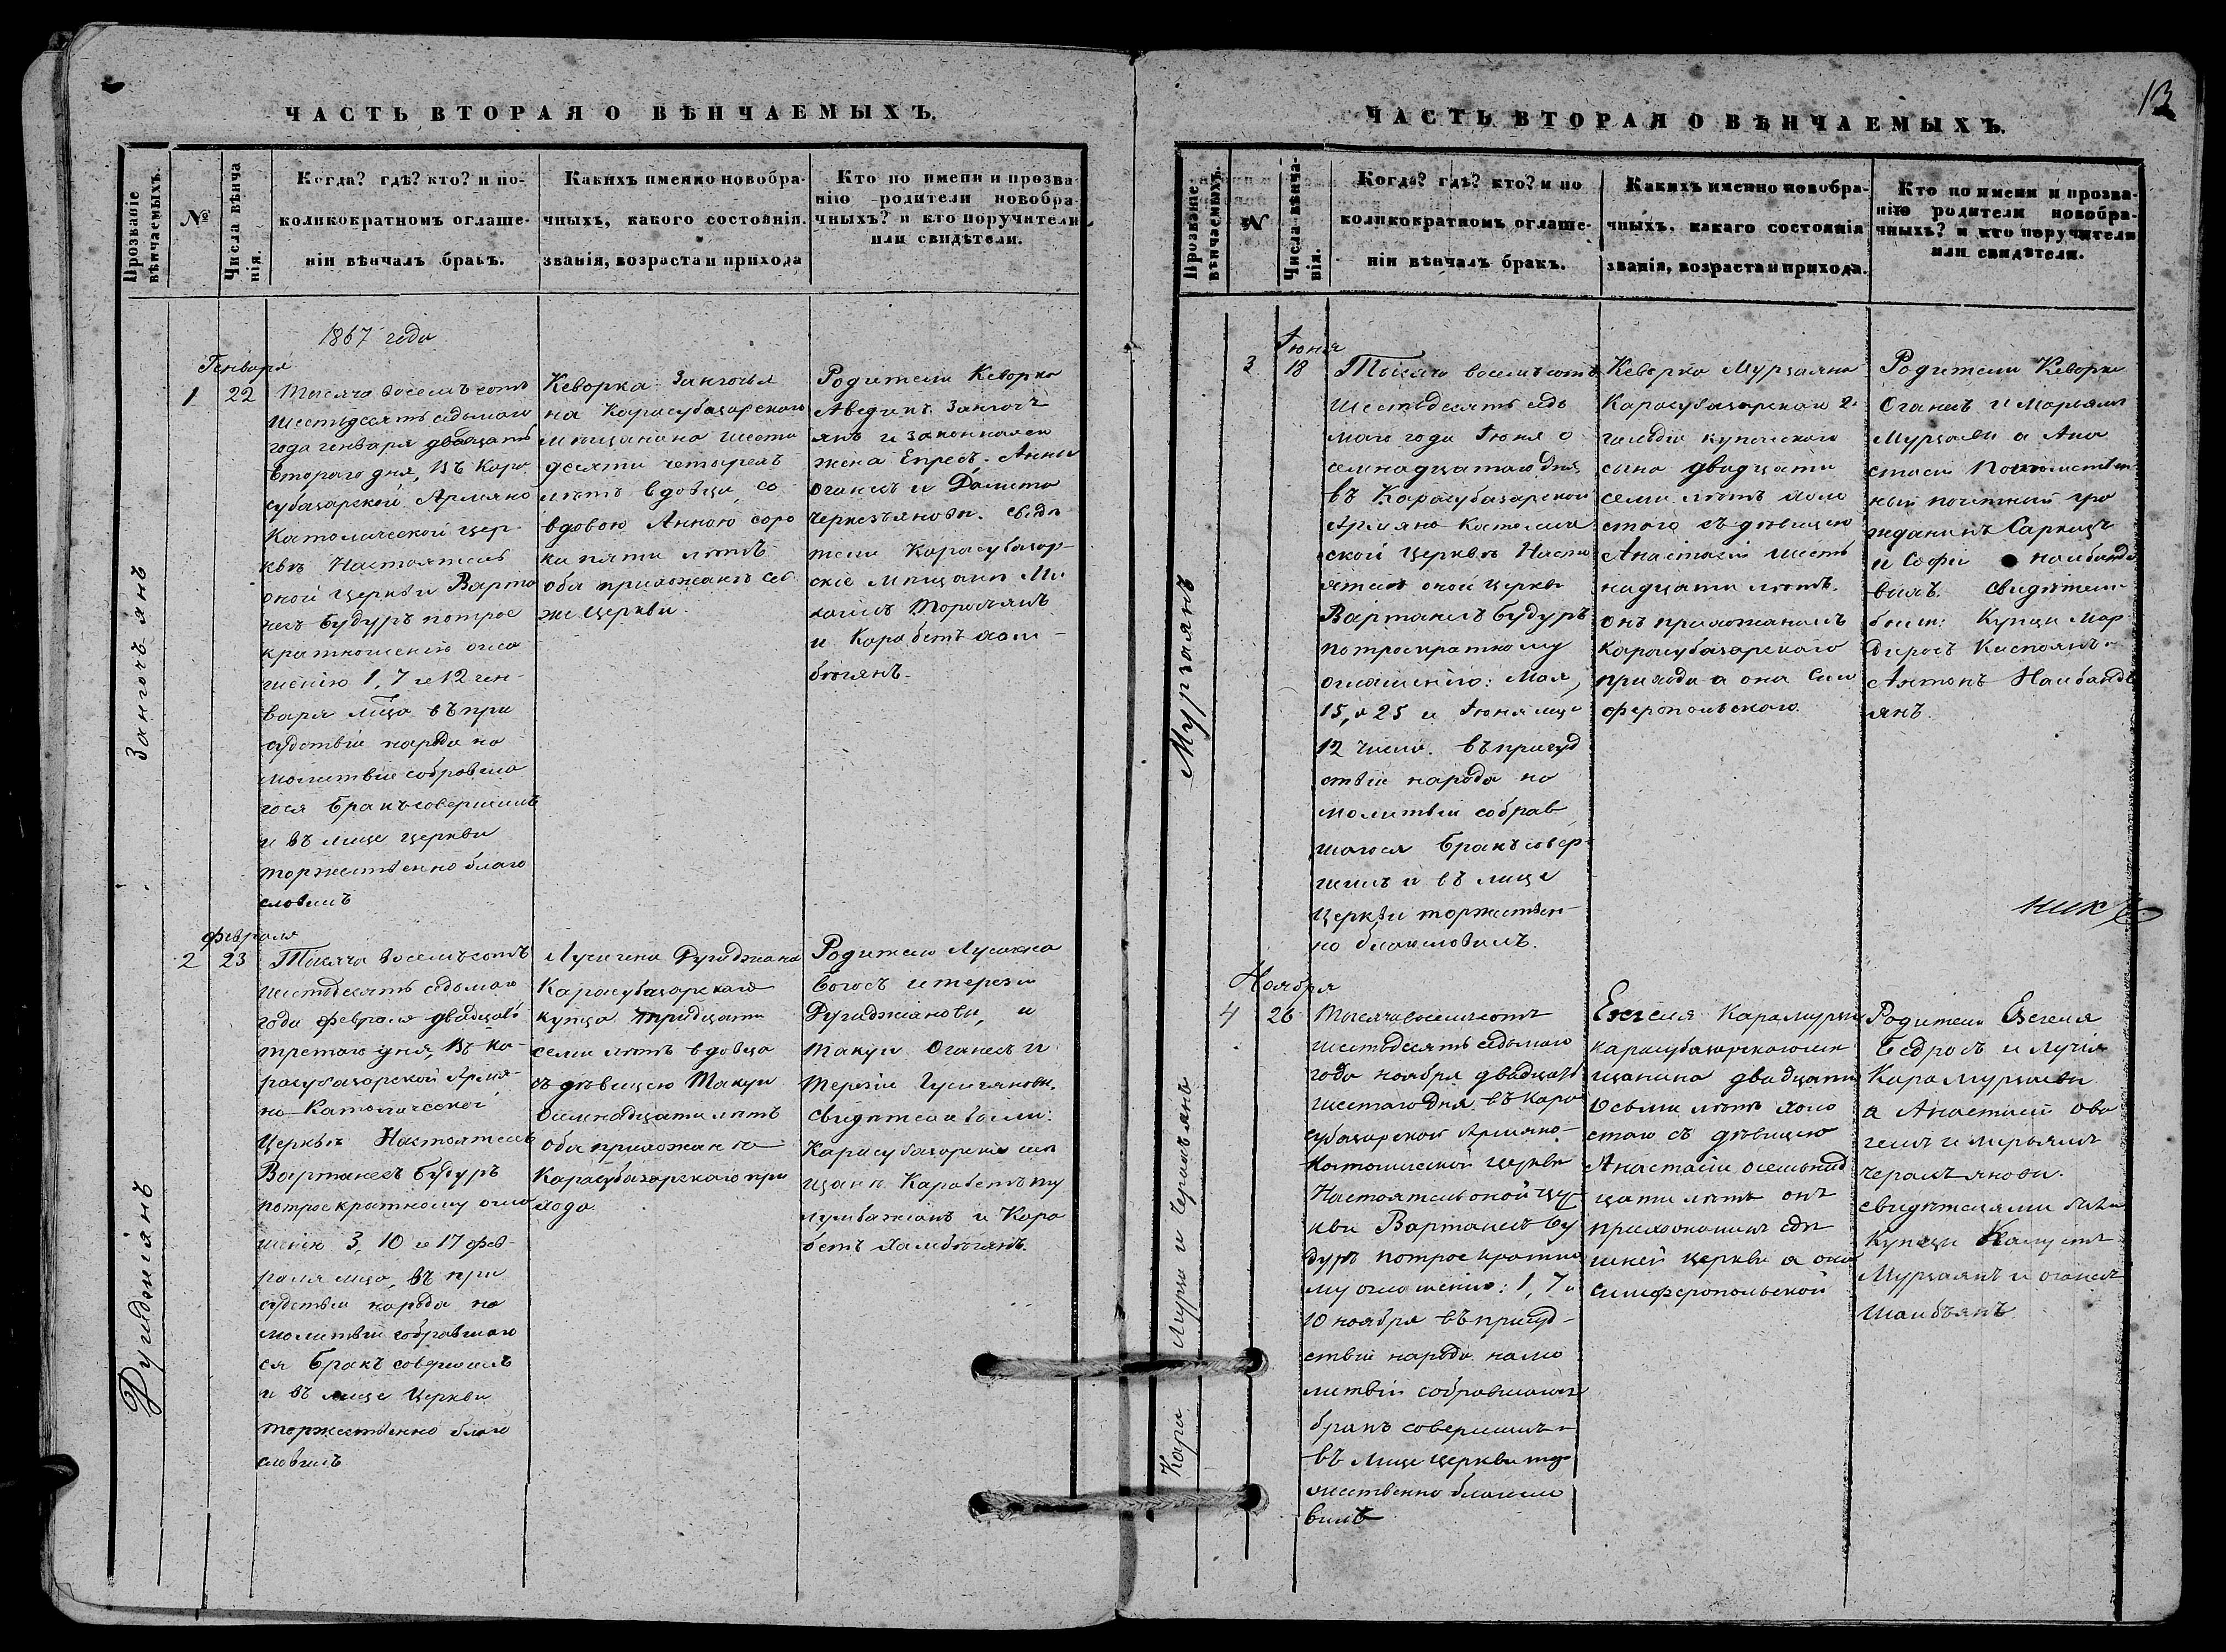 ЧАСТЬ ВТОРАЯ О ВѢНЧАЕМЫХЪ.
Прозваніе вѣнчаемыхъ.
№
Числа вѣнчанія.
Когда? гдѣ? кто? и по-
коликократномъ оглаше-
ніи вѣнчалъ бракъ.
Какихъ именно новобра-
чныхъ, какого состоянія.
званія, возраста и прихода
Кто по имени и прозва-
нію родители новобра-
чныхъ? и кто поручители
или свидѣтели.
1867 года
Генваря
1
22
Тысяча восемьсотъ
шестьдесятъ седьмаго
года генваря двадцать
втораго дня, въ Кара
субазарской Армяно
Католической цер
кви Настоятель
оной церкви Варта
несъ Будуръ потрое
кратношенію огла
шенію 1, 7 и 12 ген-
варя лица въ при
судствіи народа на
молитвіи собравша
гося бракъ совершилъ
и въ лице церкви
торжественно благо
словилъ
Кеворка
на Карасубазарскаго
мѣщанина шести
десяти четырехъ
лѣтъ вдовца, со
вдовою Анною соро
ка пяти лѣтъ
оба прихожанъ сей
же церкви.
Родители Кеворка
Аведикъ Зангочъ
янъ и законная его
жена Епресъ. Анны
Оганесъ и
Черкезъяновы. Свидѣ
тели Карасубазар-
скіе мѣщане Ми
каилъ Торосъянъ
и Карабетъ
Зангочъянъ
Февраля
2
23
Тысяча восемьсотъ
шестьдесятъ седьмаго
года февраля двадцать
третьяго дня, въ Ка-
расубазарской Армя-
но-Католической
Церкви Настоятель
Вартанесъ Будуръ
потроекратному огла
шенію 3, 10 и 17 фев-
раля лица, въ при
судствіи народа на
молитвіи собравшаго
ся бракъ совершилъ
и въ лице Церкви
торжественно благо
словилъ
Карасубазарскаго
купца тридцати
семи лѣтъ вдовца
съ дѣвицею Такуи
осемнадцати лѣтъ
оба прихожане
Карасубазарскаго при
хода.
Богосъ и Терезія
и
Такуи Оганесъ и
Терезія
свидѣтели были:
Карасубазарскіе мѣ
щане Карабетъ
и Кара
бетъ
ЧАСТЬ ВТОРАЯ О ВѢНЧАЕМЫХЪ.
13
Прозваніе вѣнчаемыхъ.
№
Числа вѣнчанія.
Когда? гдѣ? кто? и по
коликократномъ оглаше-
ніи вѣнчалъ бракъ.
Какихъ именно новобра-
чныхъ. какаго состоянія
званія, возраста и прихода.
Кто по имени и прозва-
нію родители новобра-
чныхъ? и кто поручители
или свидѣтели.
Мурзаянъ
Іюня
3
18
Тысяча восемьсотъ
шестьдесятъ седь
маго года Іюня о
семнадцатаго дня
въ Карасубазарской
Армяно Католиче
ской Церкви Насто
ятель оной церкви
Вартанесъ Будуръ
потроекратному
оглашенію: Мая,
15, и 25 и Іюня лица
12 числа. въ присуд
ствіи народа на
молитвіи собрав
шагося бракъ совер-
шилъ и въ лице
Церкви торжествен-
но благословилъ.
Кеворка Мурзаяна
Карасубазарскаго 2й
гильдіи купеческаго
сына двадцати
семи лѣтъ холо
стаго съ дѣвицею
Анастасіи шест
надцати лѣтъ.
онъ прихожанинъ
Карасубазарскаго
прихода а она Сим
феропольскаго.
Родители Кеворка
Оганесъ и Марьямъ
Мурзаевы а Ана
стасіи Потомствен
ный почетный гра
жданинъ Саркизъ
и Софія
Свидѣтели
были: Купцы Мар
диросъ
Антонъ Налбандъ
янъ.
Кара Мурза и Черахъянъ
Ноября
4
26
Тысяча восемьсотъ
шестьдесятъ седьмаго
года ноября двадцать
шестаго дня въ Кара
субазарской Армяно-
Католической церкви
Настоятель оной цер
кви Вартанесъ Бу
дуръ потроекратно
му оглашенію: 1, 7 и
10 ноября въ присуд-
ствіи народа на мо
литвіи собравшагося
бракъ совершилъ и
въ лице церкви тор
жественно благосло
вилъ
Карамурзы
карасубазарскаго мѣ
щанина двадцати
осьми лѣтъ холо
стаго съ дѣвицею
Анастасіи осьмнад
цати лѣтъ онъ
прихожанинъ здѣ
шней церкви а она
симферопольской
Родители
Бедросъ и Лучія
Кара Мурзаевы
а Анастасіи
и Марьямъ
свидѣтелями были
Купцы
Мурзаянъ и Оганесъ